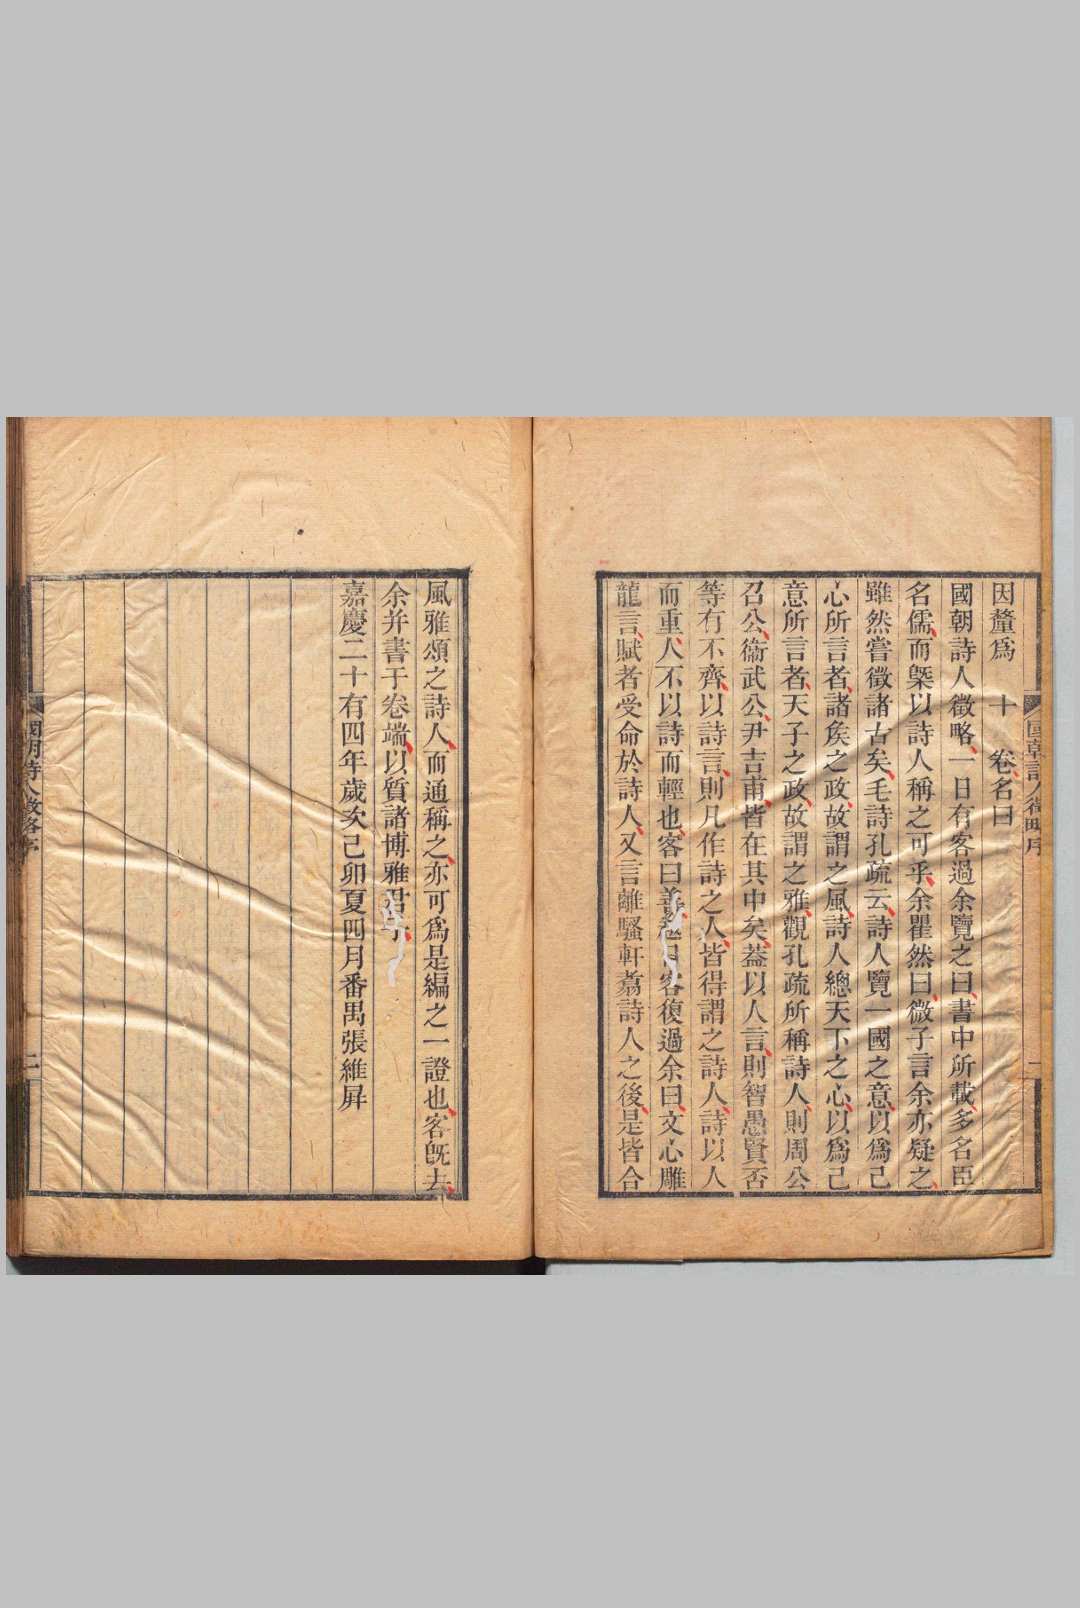 國朝詩人徵略序
一
因釐爲　十　卷名曰
國朝詩人徵略一日有客過余覽之曰書中所載多名臣
名儒而槩以詩人稱之可乎余瞿然曰微子言余亦疑之
雖然嘗徵諸古矣毛詩孔疏云詩人覽一國之意以爲己
心所言者諸矦之政故謂之風詩人總天下之心以爲己
意所言者天子之政故謂之雅觀孔疏所稱詩人則周公
召公衞武公尹吉甫皆在其中矣葢以人言則智愚賢否
等有不齊以詩言則凡作詩之人皆得謂之詩人詩以人
而重人不以詩而輕也客曰善越日客復過余曰文心雕
龍言賦者受命於詩人又言離騷軒翥詩人之後是皆合
風雅頌之詩人而通稱之亦可爲是編之一證也客旣去
余并書于卷端以質諸博雅君子
嘉慶二十有四年歲次己卯夏四月番禺張維屏
國朝詩人徵略序
二